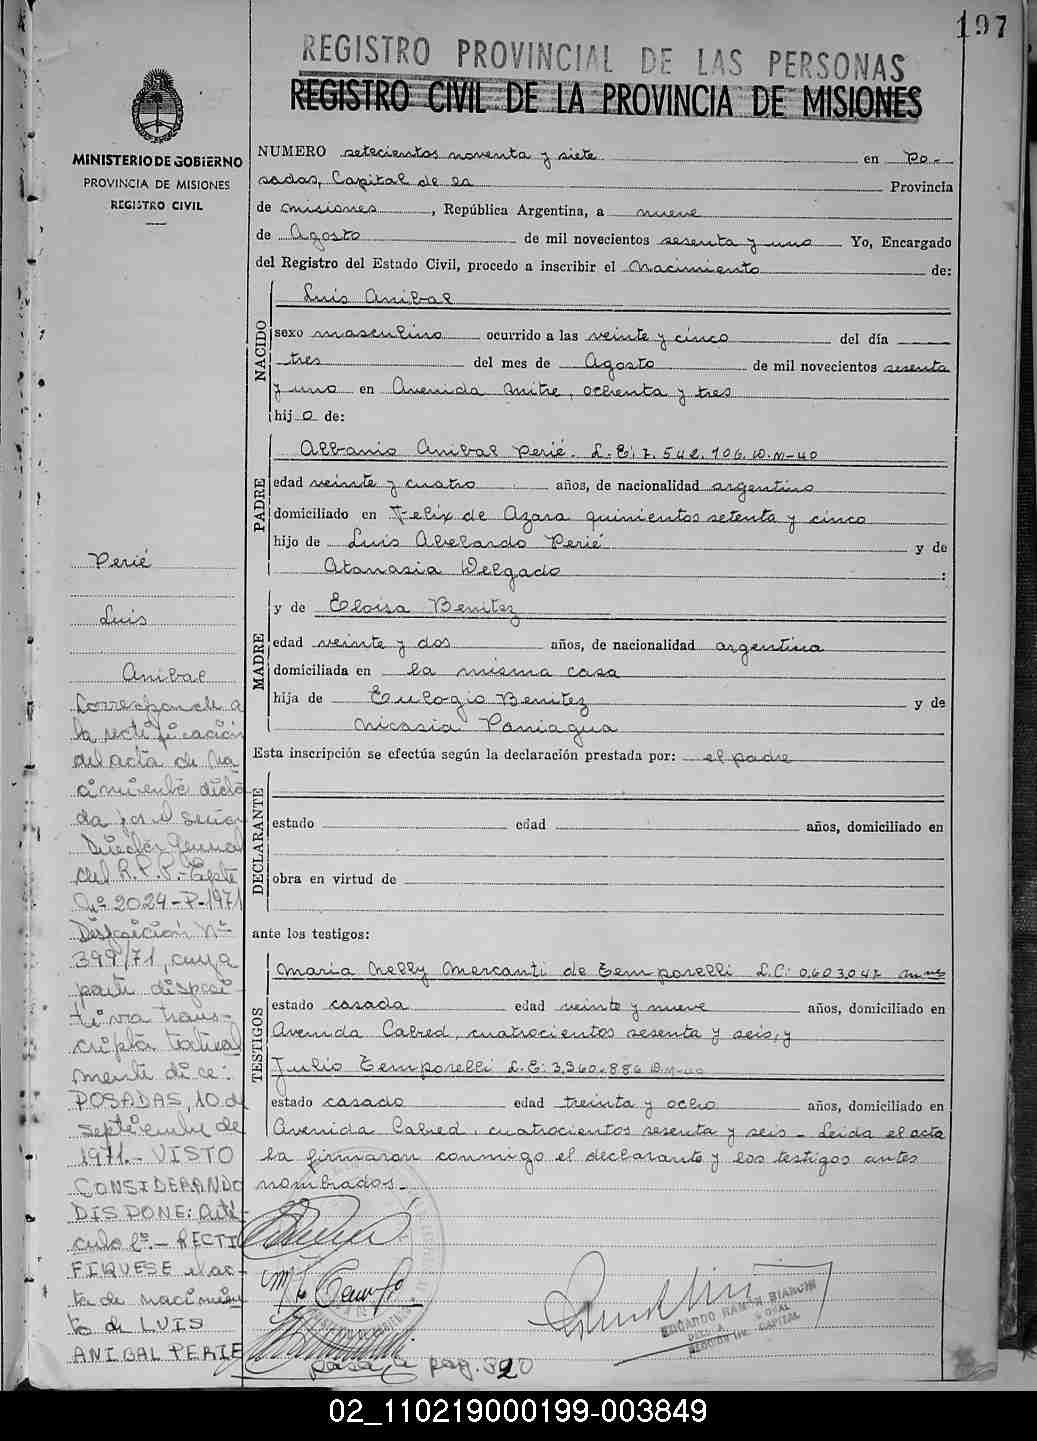 197
REGISTRO PROVINCIAL DE LAS PERSONAS
REGISTRO CIVIL DE LA PROVINCIA DE MISIONES
MINISTERIO DE GOBIERNO
PROVINCIA DE MISIONES
REGISTRO CIVIL
NUMERO setecientos noventa y siete en Po-
sadas, Capital de la Provincia
de Misiones, República Argentina, a nueve
de Agosto de mil novecientos sesenta y uno Yo, Encargado
del Registro del Estado Civil, procedo a inscribir el Nacimiento de:
NACIDO
Luis Anibal
sexo masculino ocurrido a las veinte y cinco del día
tres del mes de Agosto de mil novecientos sesenta
y uno en Avenida Mitre, ochenta y tres
hijo de:
PADRE
Albanio Anibal Perié. L.E: 7.542.706. D.M-40
edad veinte y cuatro años, de nacionalidad argentino
domiciliado en Felix de Azara quinientos setenta y cinco
hijo de Luis Abelardo Perié y de
Atanasia Delgado :
MADRE
y de Eloisa Benitez
edad veinte y dos años, de nacionalidad argentina
domiciliada en la misma casa
hija de Eulogio Benitez y de
Nicasia Paniagua
Esta inscripción se efectúa según la declaración prestada por: el padre
DECLARANTE
estado edad años, domiciliado en
obra en virtud de
ante los testigos:
TESTIGOS
Maria Nelly Mercanti de Temporelli L.C: 0.603.047
estado casada edad veinte y nueve años, domiciliado en
Avenida Cabred, cuatrocientos sesenta y seis, y
Julio Temporelli L.E: 3.360.886 D.M-40
estado casado edad treinta y ocho años, domiciliado en
Avenida Cabred, cuatrocientos sesenta y seis - Leida el acta
la firmaron conmigo el declarante y los testigos antes
nombrados.-
EDUARDO RAMON BIANCHI
CAPITAL
pasa a pag. 320
Perié
Luis
Anibal
Corresponde a
la rectificación
del acta de Na
cimiento dicta
da por el señor
Director General
del R.P.P.- Expte
Nº 2024-P-1971
Disposición Nº
399/71, cuya
parte disposi-
tiva trans-
cripta textual
mente dice:
POSADAS, 10 de
septiembre de
1971.- VISTO
CONSIDERANDO
DISPONE: Artí
culo 1º.- RECTI
FIQUESE el ac-
ta de nacimien
to de LUIS
ANIBAL PERIE
02_110219000199-003849